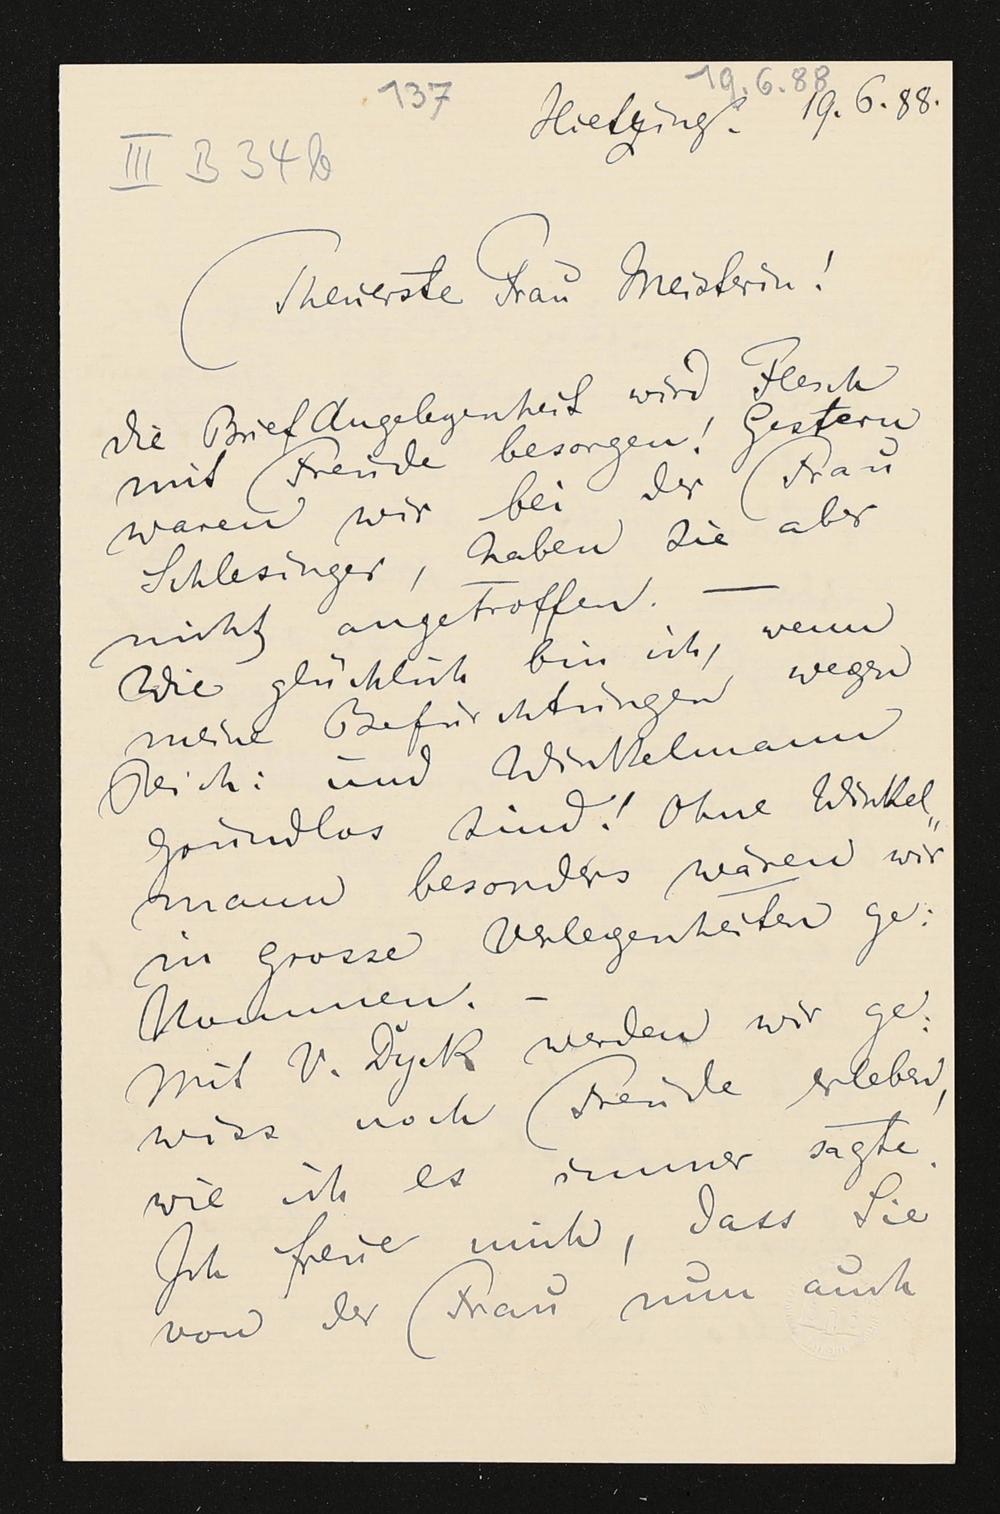 137
19.6.88
Hietzing. 19. 6. 88.
III B 34 b
Theuerste Frau Meisterin!
die Brief Angelegenheit wird Flesch
mit Freude besorgen! Gestern
waren wir bei der Frau
Schlesinger, haben sie aber
nicht angetroffen. —
Wie glücklich bin ich, wenn
meine Befürchtungen wegen
Reich: und Winkelmann
grundlos sind! Ohne Winkel„
mann besonders wären wir
in grosse Verlegenheiten ge:
kommen. –
Mit V. Dyck werden wir ge:
wiss noch Freude erleben,
wie ich es immer sagte.
Ich freue mich, dass Sie
von der Frau nun auch